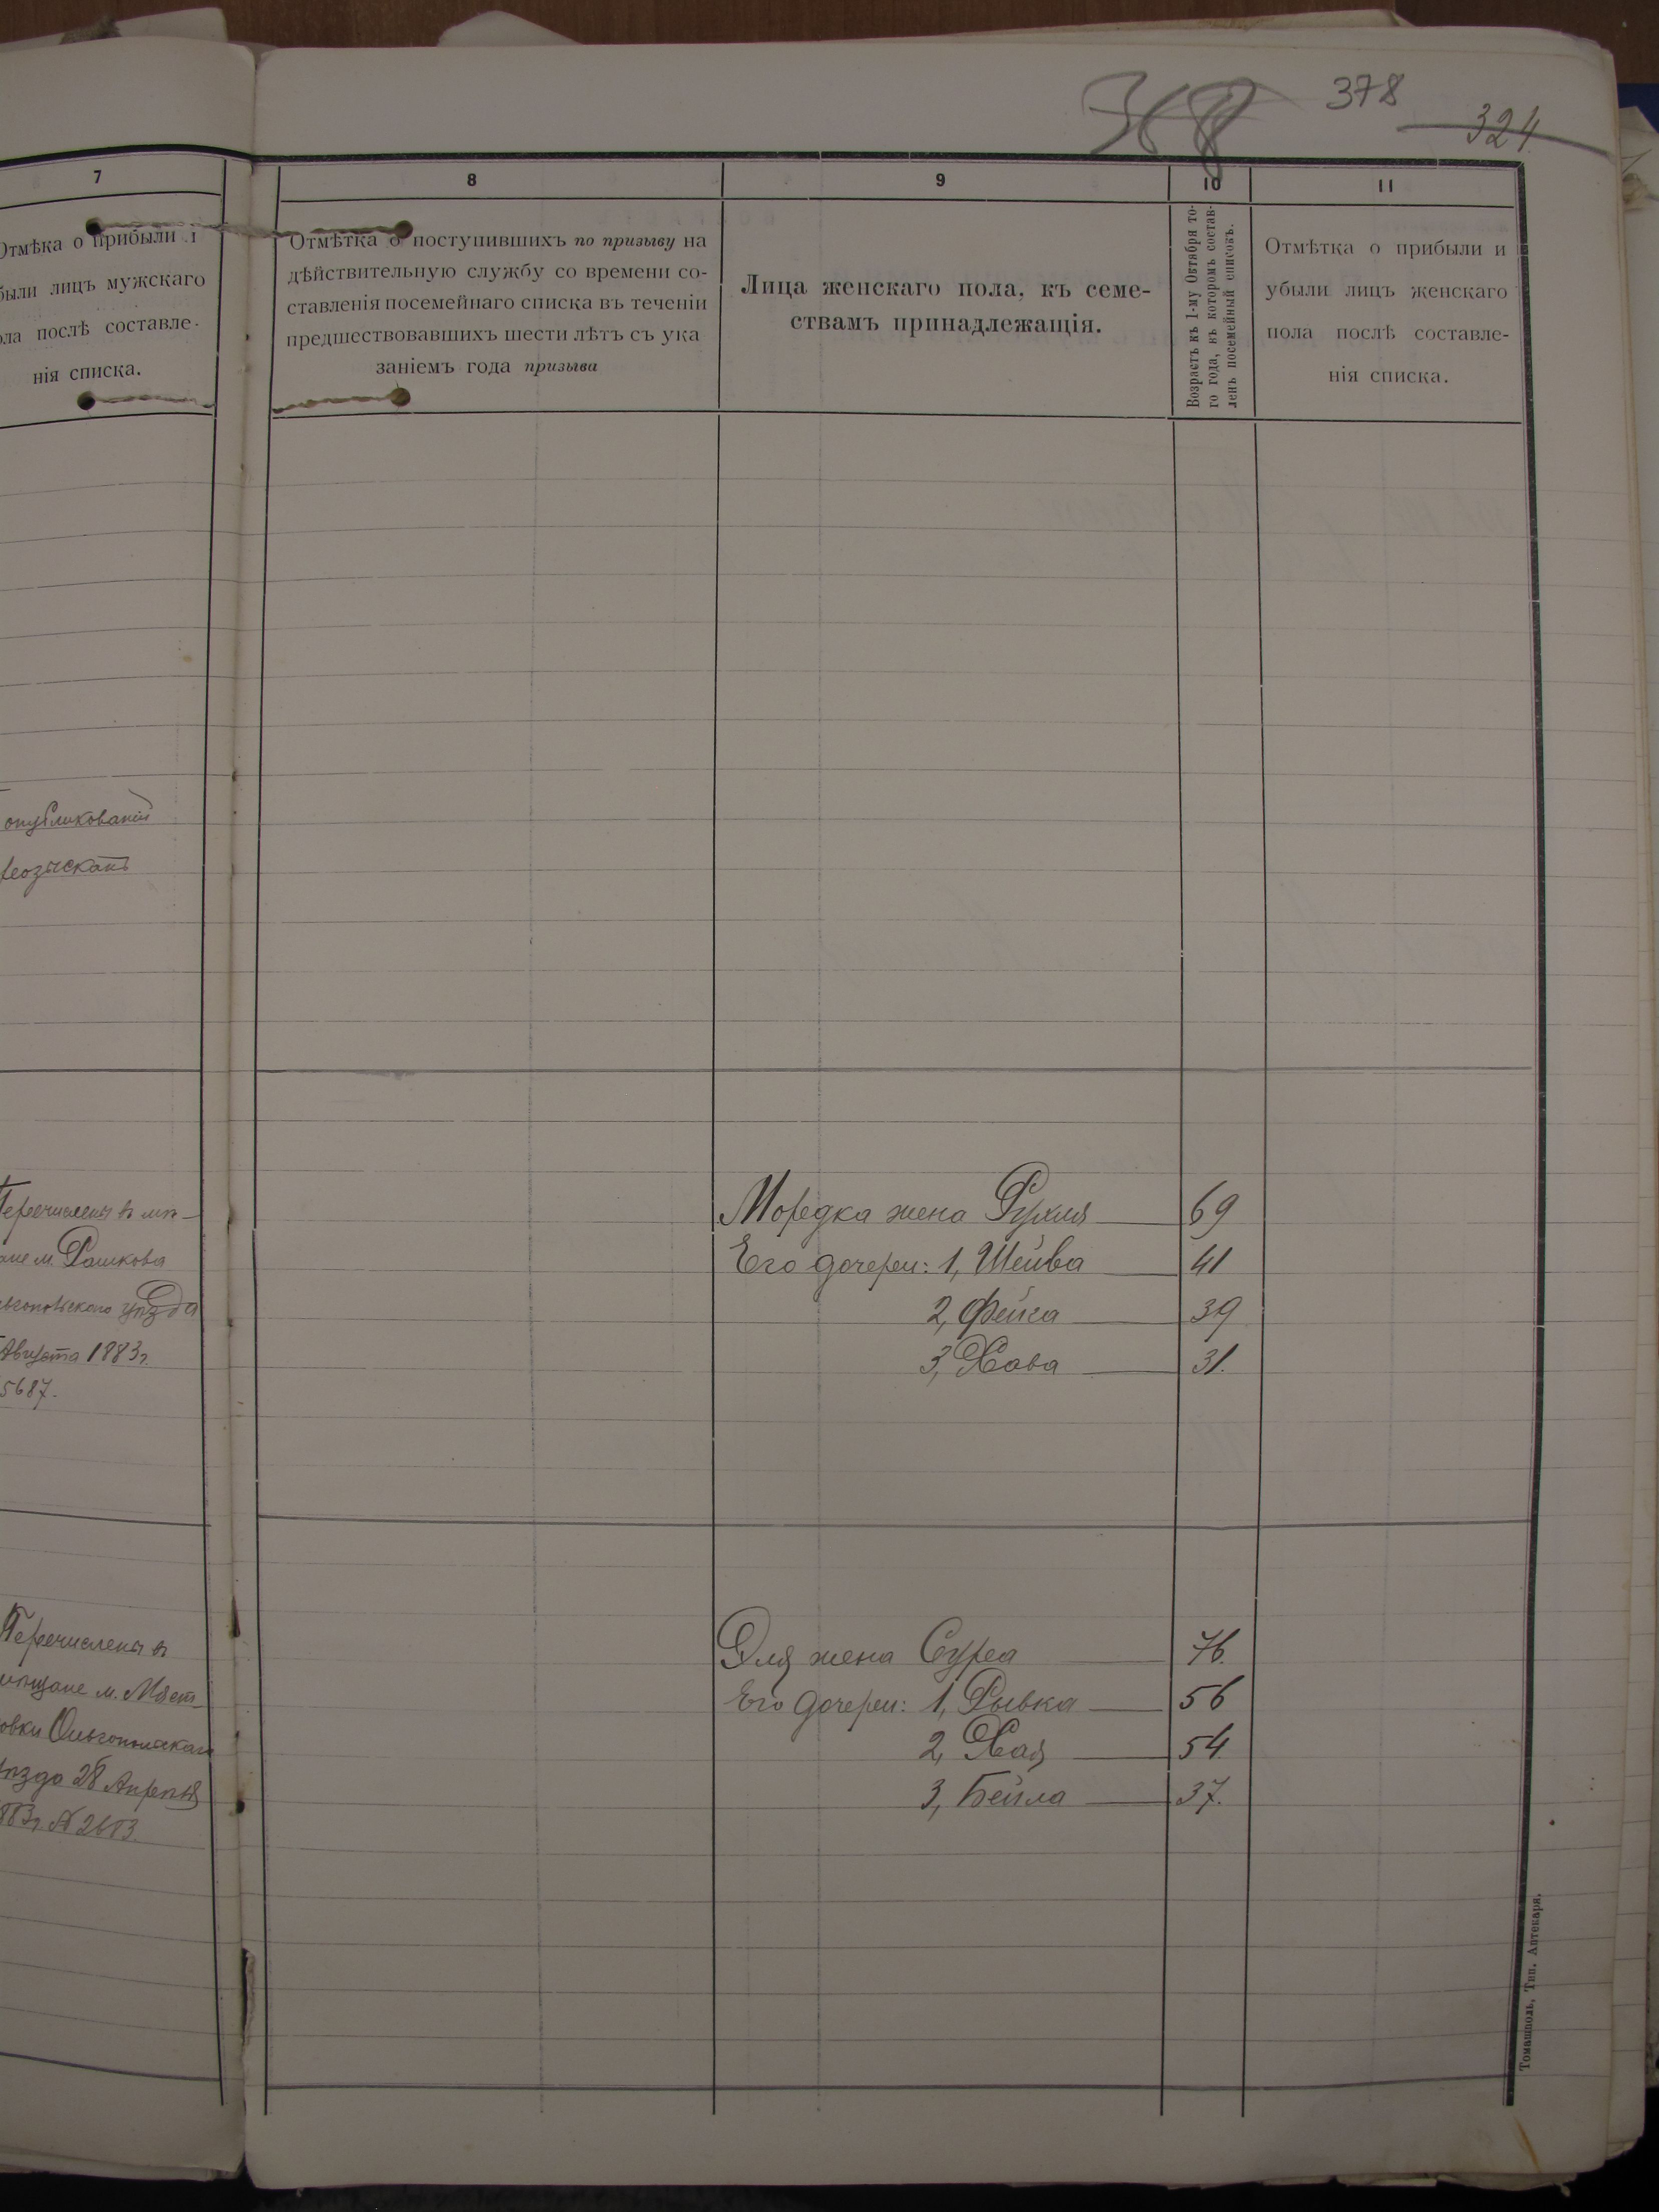 368 378 324
7
Отмѣка о прибыли и
были лицъ мужскаго
ола послѣ составле-
нія списка.
8
Отмѣтка о поступившихъ по призыву на
дѣйствительную службу со времени со-
ставленія посемейнаго списка въ теченіи
предшествовавшихъ шести лѣтъ съ ука
заніемъ года призыва
9
Лица женскаго пола, къ семе-
ствамъ принадлежащія.
10
Возрастъ къ 1-му Октября то-
го года, къ которомъ состав-
ленъ посемейный списокъ.
11
Отмѣтка о прибыли и
убыли лицъ женскаго
пола послѣ составле-
нія списка.
опубликованій
Перечислены в мѣ-
ане м. Рашкова
уѣзда
Августа 1883 г.
5687.
Мордка жена Рухля 69
Его дочери: 1, Шейва 41
2, Фейга 39
3, Хава 31.
Перечислены в
мѣщане м. Мяст-
овки Ольгопольскаго
уѣзда 28 Апрѣля
883 г. № 2613.
Эля жена Сура 76.
Его дочери: 1, Рывка 56
2, Хая 54.
3, Бейла 37.
Томашполь, Тип. Аптекаря.